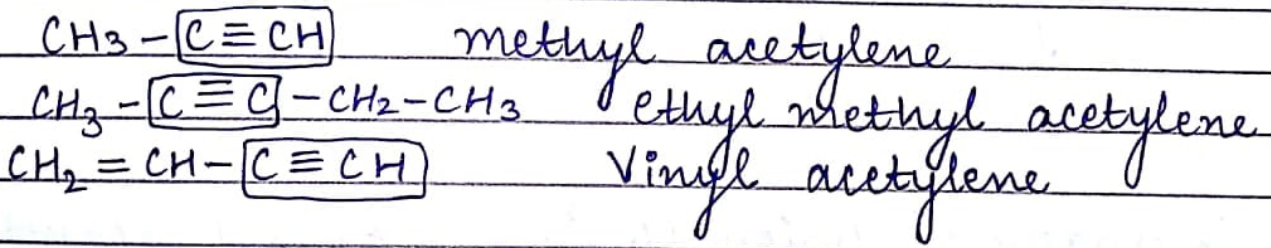 CH3-C≡CH methyl acetylene
CH₃-C≡C-CH₂-CH₃ ethyl methyl acetylene
CH₂=CH-C≡CH Vinyl acetylene